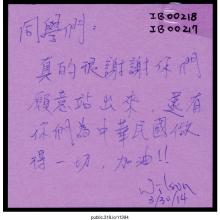 IB00218
IB00217
同學們：
真的很謝謝你們
願意站出來，還有
你們為中華民國做
得一切，加油!!
Wilson
3/30/14
public.318.io/11284